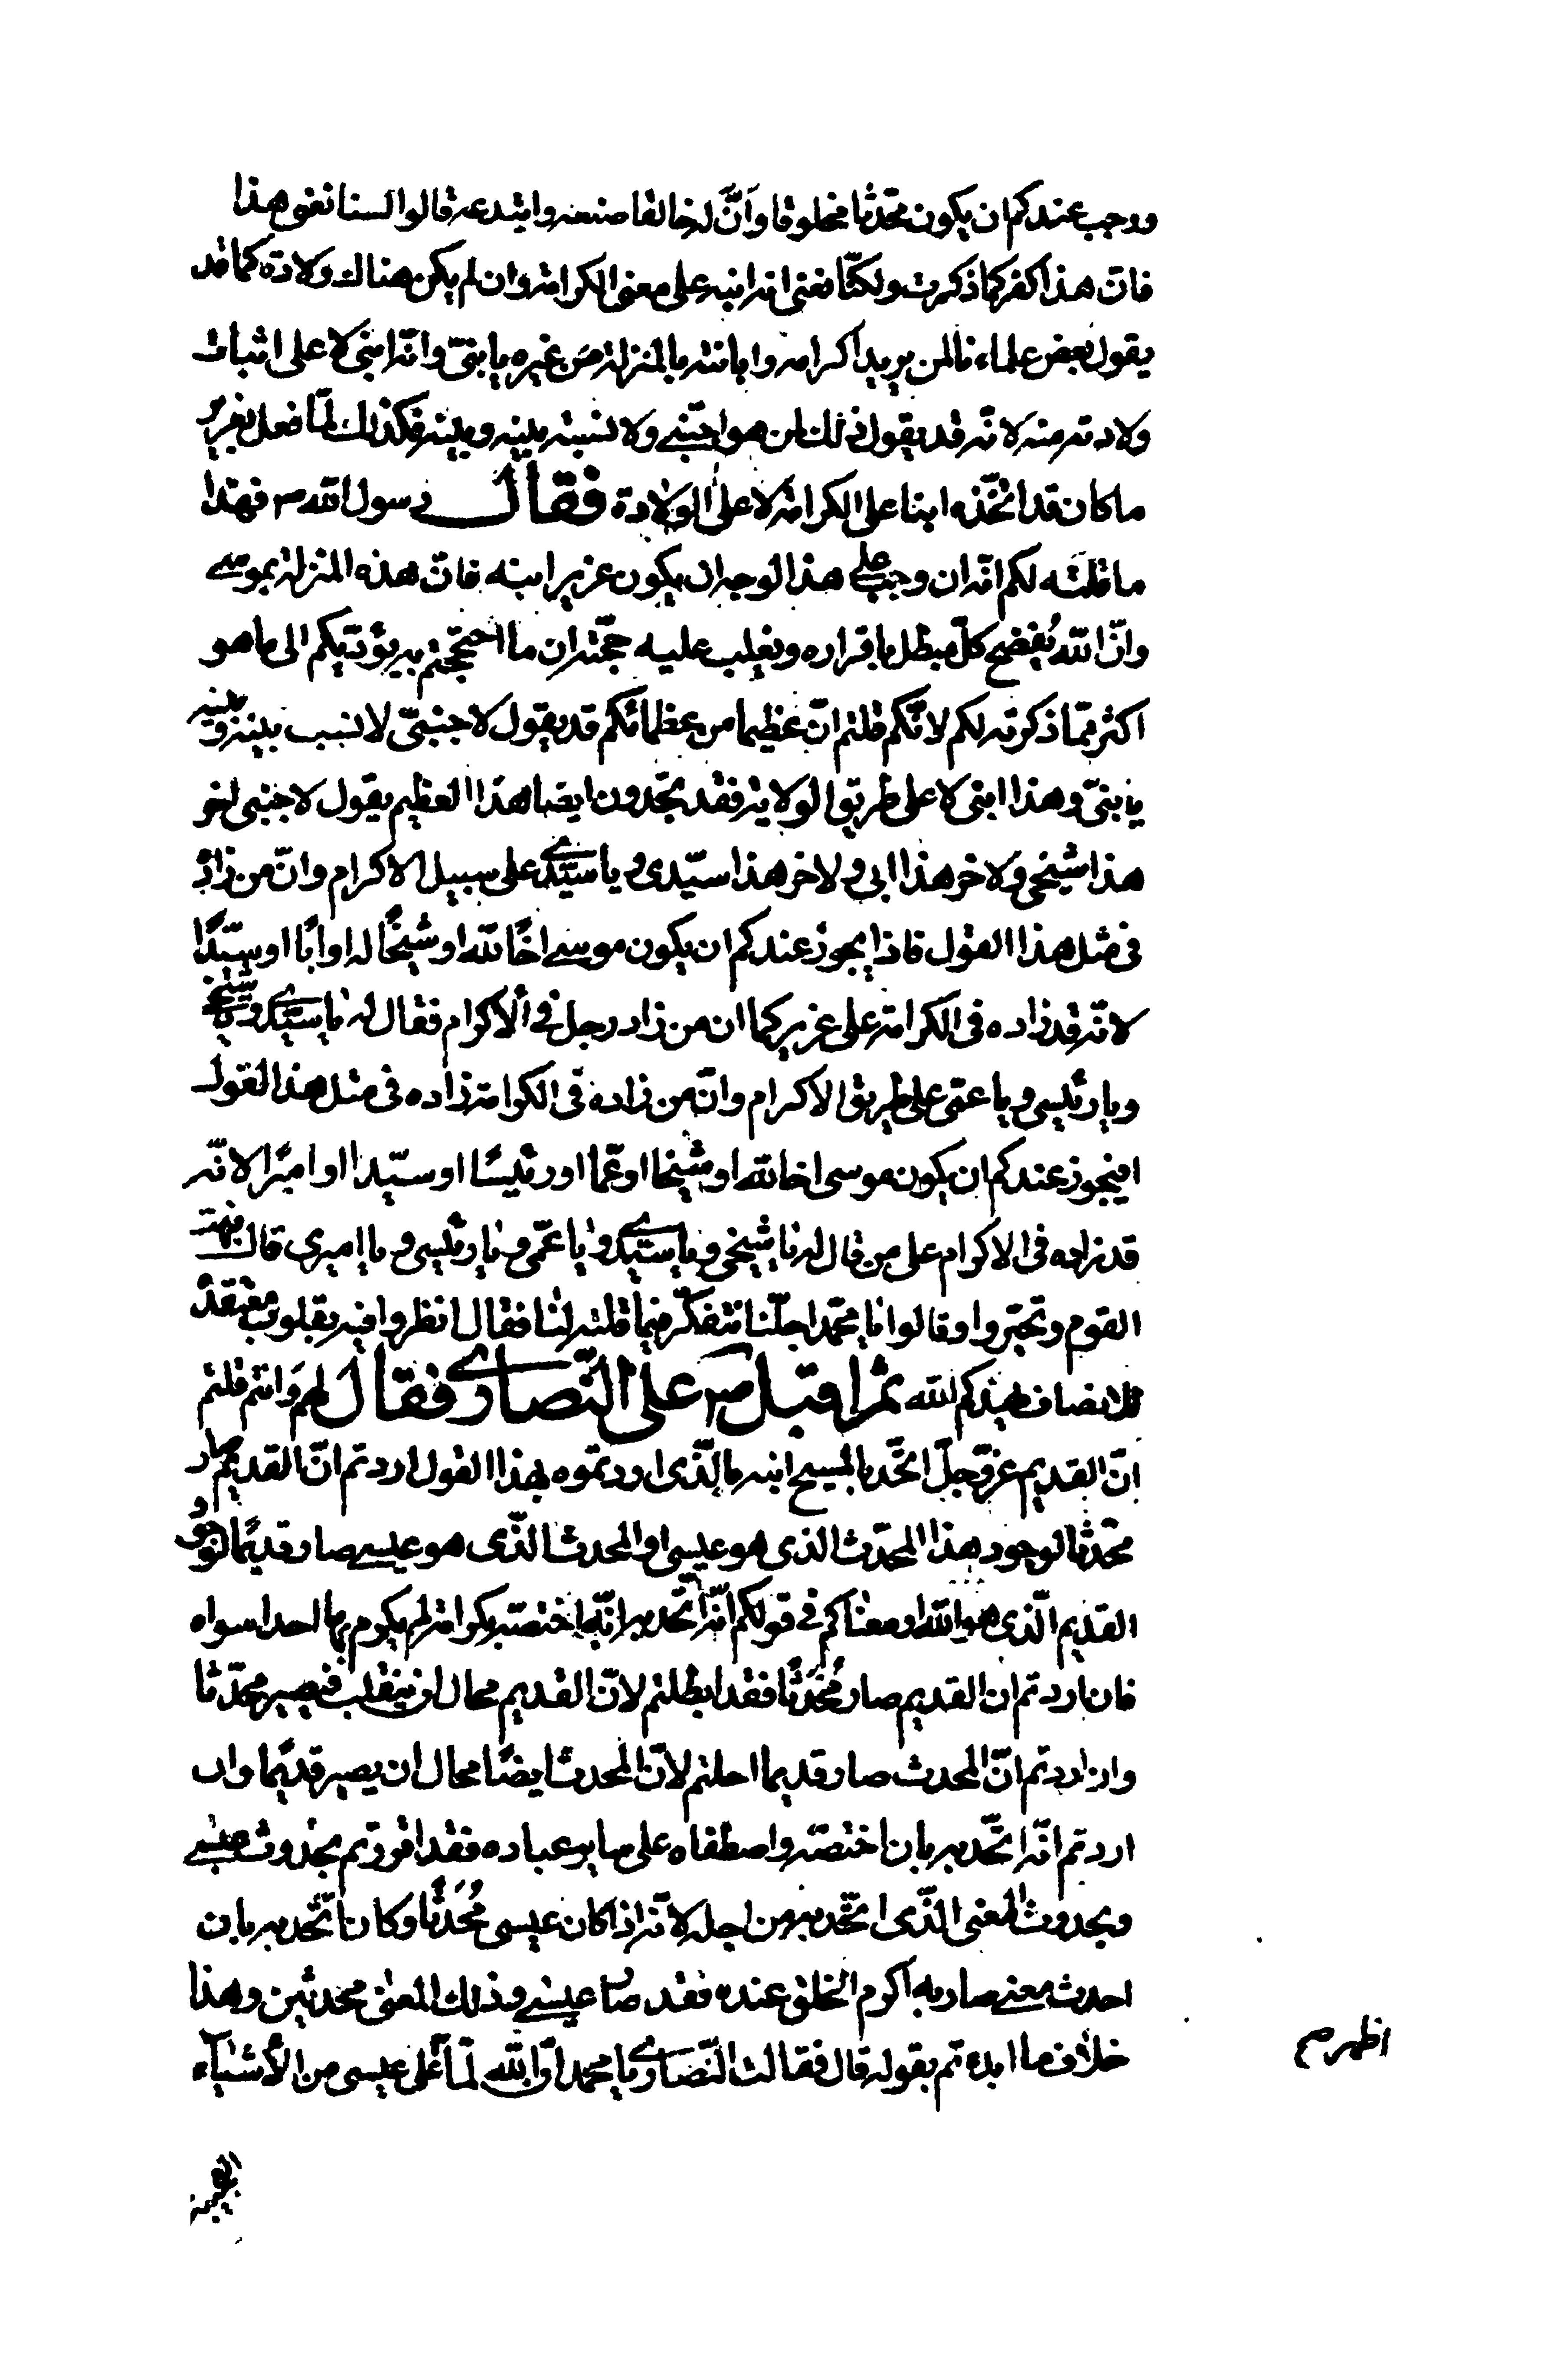 ووجب عندكم ان يكون محدثا مخلوقا وانّ له خالقا صنعه وابتدعه قالوا لسنا نعني هذا
فانّ هذا كفر كما ذكرت ولكنّا نعني انه ابنه على معنى الكرامة وان لم يكن هناك ولادة كما قد
يقول بعض علماءنا لمن يريد اكرامه وابانته بالمنزلة من غيره يا بنيّ وانّه ابني لا على اثبات
ولادته منه لانّه قد يقول ذلك لمن هو اجنبي ولا نسبة بينه وبينه فكذلك لمّا فعل بعزير
ما كان قد اتّخذه ابنا على الكرامة لا على الولادة فقال رسول الله ص فهذا
ما قلته لكم انّه ان وجب على هذا الوجه ان يكون عزير ابنه فانّ هذه المنزلة بموسى
وانّ الله يُفضح كلّ مبطل باقراره ويغلب عليه حجّته ان ما احتججتم به يؤدّيكم الى ما هو
اكثر ممّا ذكرته لكم لانّكم قلتم انّ عظيما من عظمائكم قد يقول لاجنبيّ لا نسب بينه وبينه
يا بنيّ وهذا ابني لا على طريق الولاية فقد تجدون ايضا هذا العظيم يقول لاجنبي اخر
هذا شيخي ولاخر هذا ابي ولاخر هذا سيّدي ويا سيّدي على سبيل الاكرام وانّ من زاد
في مثل هذا القول فاذا يجوز عندكم ان يكون موسى اخًا لله او شيخًا له او ابًا او سيّدًا
لانّه قد زاده في الكرامة على عزير كما ان من زاد رجل في الاكرام فقال له يا سيّدي ويا شيخي
ويا رئيسي ويا عمّي على طريق الاكرام وانّ من زاده في الكرامة زاده في مثل هذا القول
افيجوز عندكم ان يكون موسى اخا لله او شيخا او عمّا او رئيسًا او سيّدا او اميرًا لانّه
قد زاده في الاكرام على من قال له يا شيخي ويا سيّدي ويا عمّي ويا رئيسي ويا اميري قال فبهت
القوم وتحيّروا وقالوا يا محمّد اجلّنا نتفكّر فيما قلته لنا فقال انظروا فيه بقلوب معتقدة
للانصاف يهدكم الله ثم اقبل ص على النّصارى فقال لهم وانتم قلتم
انّ القديم عزّ وجلّ اتّحد بالمسيح ابنه ما الّذي اردتموه بهذا القول اردتم انّ القديم صار
محدّثا لوجود هذا المحدّث الذي هو عيسى او المحدث الّذي هو عيسى صار قديمًا لوجود
القديم الّذي هو الله او معناكم في قولكم انّه اتّحد به انّه اختصّه بكرامة لم يكرم بها احدا سواه
فان اردتم ان القديم صار مُحْدَثًا فقد ابطلتم لانّ القديم محال ان ينقلب فيصير محدّثا
وان اردتم انّ المحدث صار قديما احلتم لانّ المحدث ايضًا محال ان يصير قديمًا وان
اردتم انّه اتّحد به بان اختصّه واصطفاه على ساير عباده فقد اقررتم بحدوث عيسى
وبحدوث المعنى الّذي اتّحد به من اجله لانّه اذا كان عيسى مُحْدَثًا وكان اتّحد به بان
احدث معنى صار به اكرم الخلق عنده فقد صار عيسى وذلك المعنى محدثين وهذا
خلاف ما ابدءتم بقوله قال فقالت النّصارى يا محمد انّ الله لمّا
على عيسى من الأشياء
اظهر م